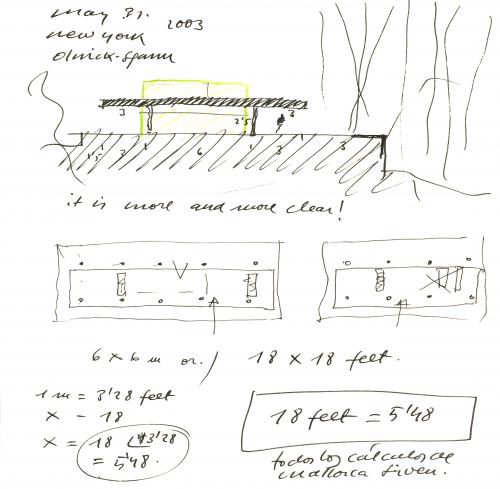 may 31.
2003
new york
olnick-spanu
3 2'5 3
1'5 3 1 6 1 3 1 3
it is more and more clear!
6 x 6 m or / 18 x 18 feet.
1 m = 3'28 feet
x - 18
x = 18 3'28
= 5'48.
18 feet = 5'48
todos los cálculos de
mallorca sirven.